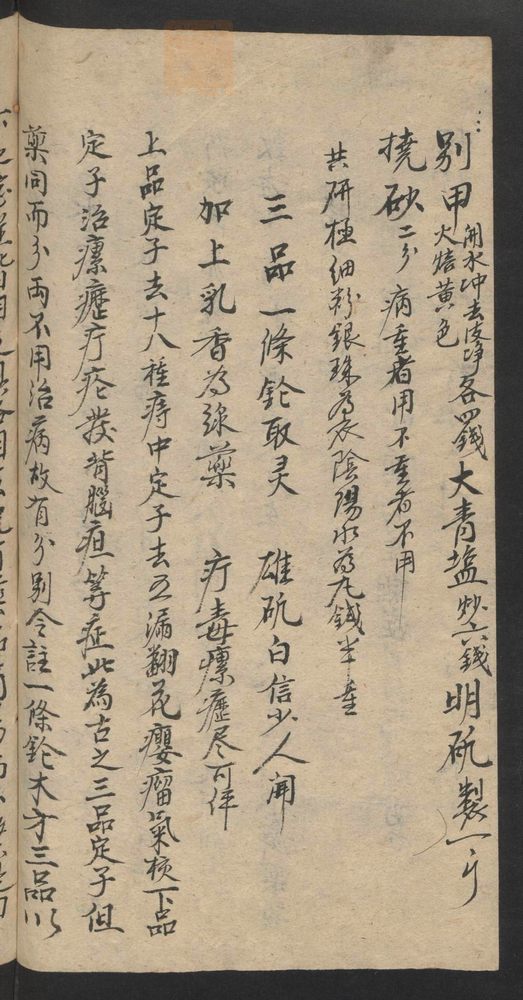 別甲開水冲去浮火焙黄色各四錢大青塩炒六錢明矾製一个
硇砂二分病重者用不重者不用
共研極细粉銀珠为衣陰陽水为丸錢半重
三品一條鎗取灵 雄矾白信少人闻
加上乳香为線藥 疔毒瘰癧尽可伻
上品定子去十八種痔中定子去五漏翻花瘿瘤氣核下品
定子治瘰癧疔疮發背腦疽等症此為古之三品定子但
藥同而分两不用治病故有分别今註一條鎗本方三品以